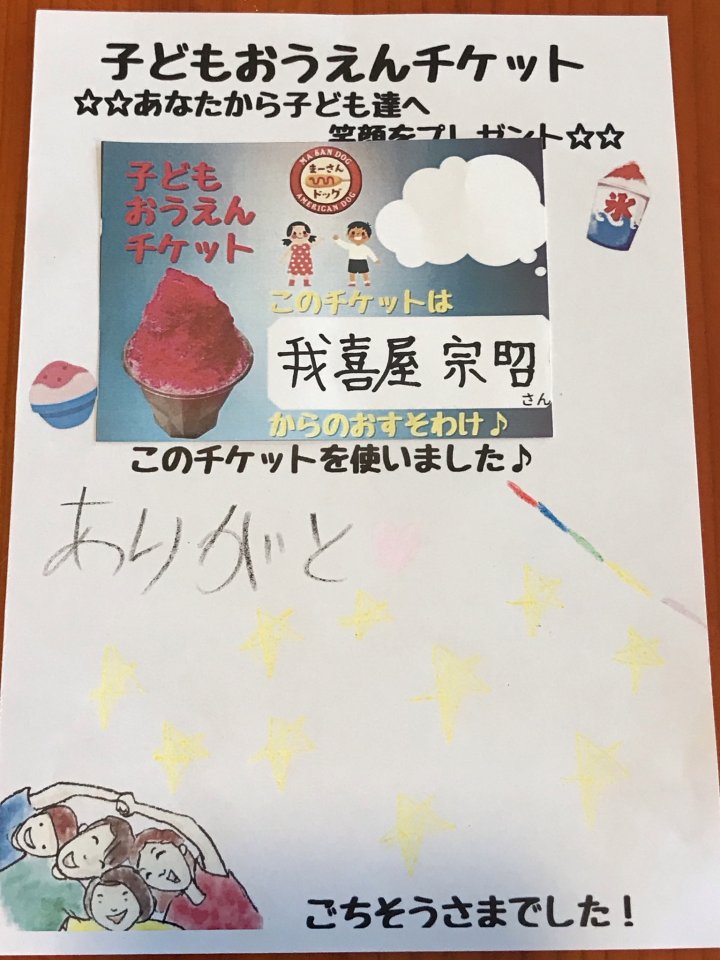 子どもおうえんチケット
☆☆あなたから子ども達へ
笑顔をプレゼント☆☆
子ども
おうえん
チケット
MA SAN DOG
まーさん
ドッグ
AMERICAN DOG
氷
このチケットは
我喜屋 宗昭
さん
からのおすそわけ♪
このチケットを使いました♪
ありがと
ごちそうさまでした!